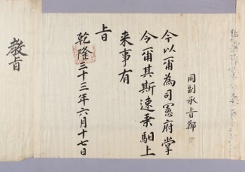 同副承旨鄭
今以爾爲司憲府掌
令爾其斯速乘馹上
来事有
旨
乾隆三十三年六月十七日
教旨